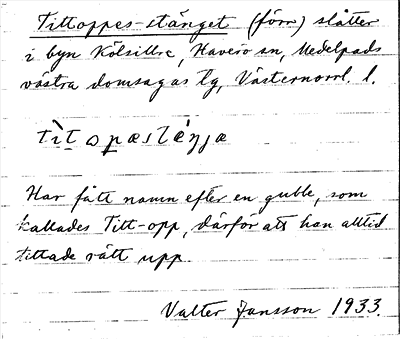 Tittoppes-stänget (förr) slåtter
i byn Kölsillre, Haverö sn, Medelpads
västra domsagas tg, Västernorrl. l.
tìt o̩pæsléŋjæ
Har fått namn efter en gubbe, som
kallades Titt-opp, därför att han alltid
tittade rätt upp.
Valter Jansson 1933.